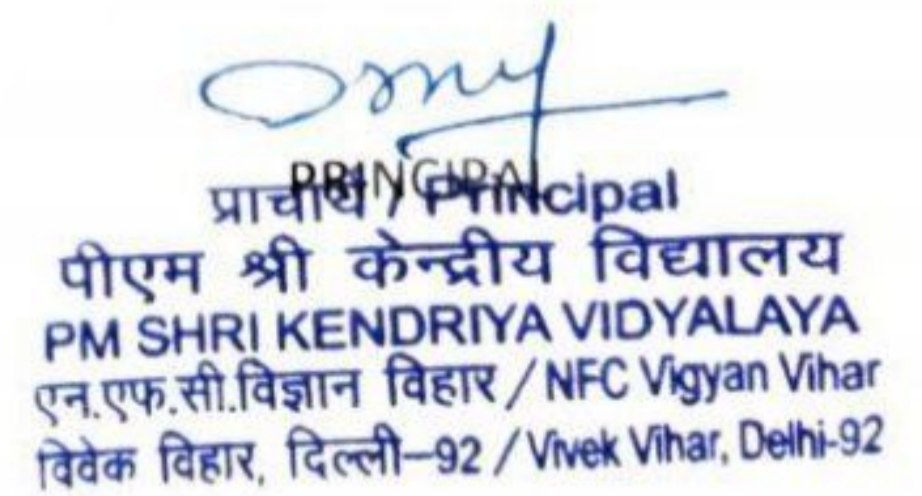 PRINCIPAL
प्राचार्य / Principal
पीएम श्री केन्द्रीय विद्यालय
PM SHRI KENDRIYA VIDYALAYA
एन.एफ.सी.विज्ञान विहार / NFC Vigyan Vihar
विवेक विहार, दिल्ली–92 / Vivek Vihar, Delhi-92